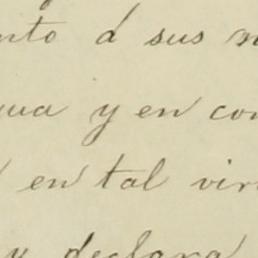 nto á sus
y en con
en tal vir
y declara